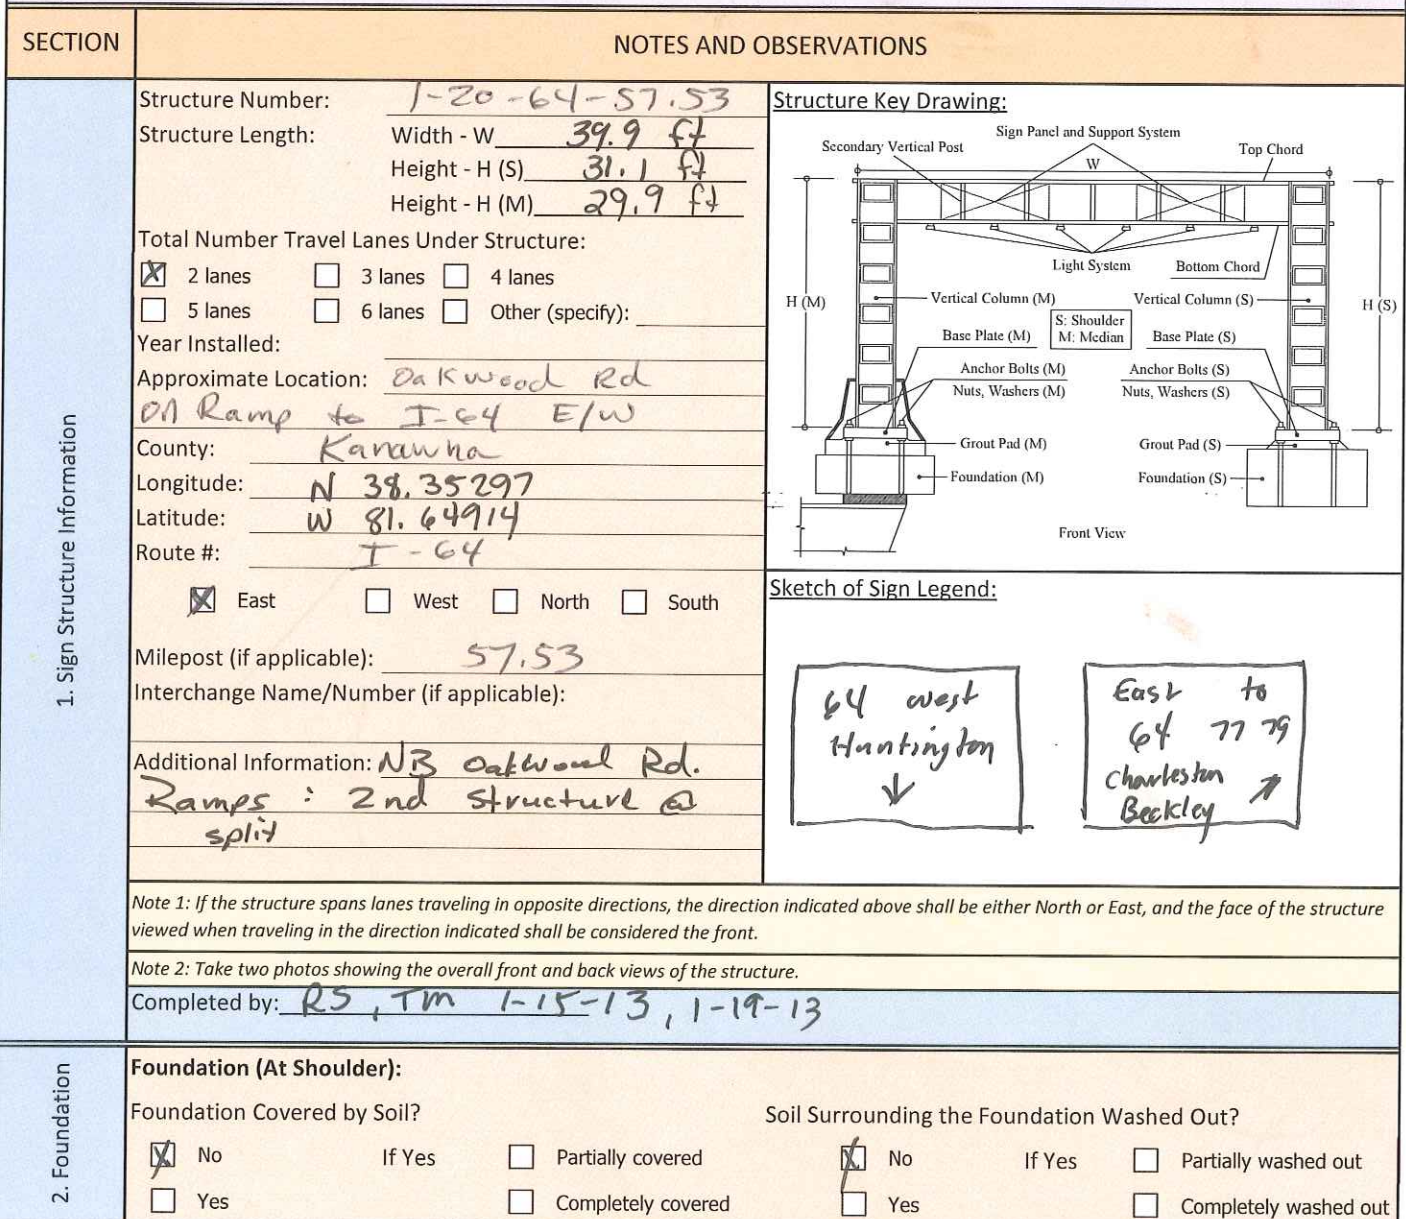 SECTION NOTES AND OBSERVATIONS
1. Sign Structure Information
Structure Number: 1-20-64-57.53
Structure Length: Width - W 39.9 ft
Height - H (S) 31.1 ft
Height - H (M) 29.9 ft
Total Number Travel Lanes Under Structure:
☒ 2 lanes ☐ 3 lanes ☐ 4 lanes
☐ 5 lanes ☐ 6 lanes ☐ Other (specify):
Year Installed:
Approximate Location: Oakwood Rd
on Ramp to I-64 E/W
County: Kanawha
Longitude: N 38.35297
Latitude: W 81.64914
Route #: I-64
☒ East ☐ West ☐ North ☐ South
Milepost (if applicable): 57.53
Interchange Name/Number (if applicable):
Additional Information: NB Oakwood Rd.
Ramps : 2nd structure @
split
Structure Key Drawing:
Sign Panel and Support System
Secondary Vertical Post
Top Chord
W
Light System
Bottom Chord
H (M)
Vertical Column (M)
Vertical Column (S)
H (S)
S: Shoulder
M: Median
Base Plate (M)
Base Plate (S)
Anchor Bolts (M)
Nuts, Washers (M)
Anchor Bolts (S)
Nuts, Washers (S)
Grout Pad (M)
Grout Pad (S)
Foundation (M)
Foundation (S)
Front View
Sketch of Sign Legend:
64 west
Huntington
↓
East to
64 77 79
Charleston
Beckley ↗
Note 1: If the structure spans lanes traveling in opposite directions, the direction indicated above shall be either North or East, and the face of the structure
viewed when traveling in the direction indicated shall be considered the front.
Note 2: Take two photos showing the overall front and back views of the structure.
Completed by: RS, TM 1-15-13, 1-19-13
2. Foundation
Foundation (At Shoulder):
Foundation Covered by Soil? Soil Surrounding the Foundation Washed Out?
☒ No If Yes ☐ Partially covered ☒ No If Yes ☐ Partially washed out
☐ Yes ☐ Completely covered ☐ Yes ☐ Completely washed out